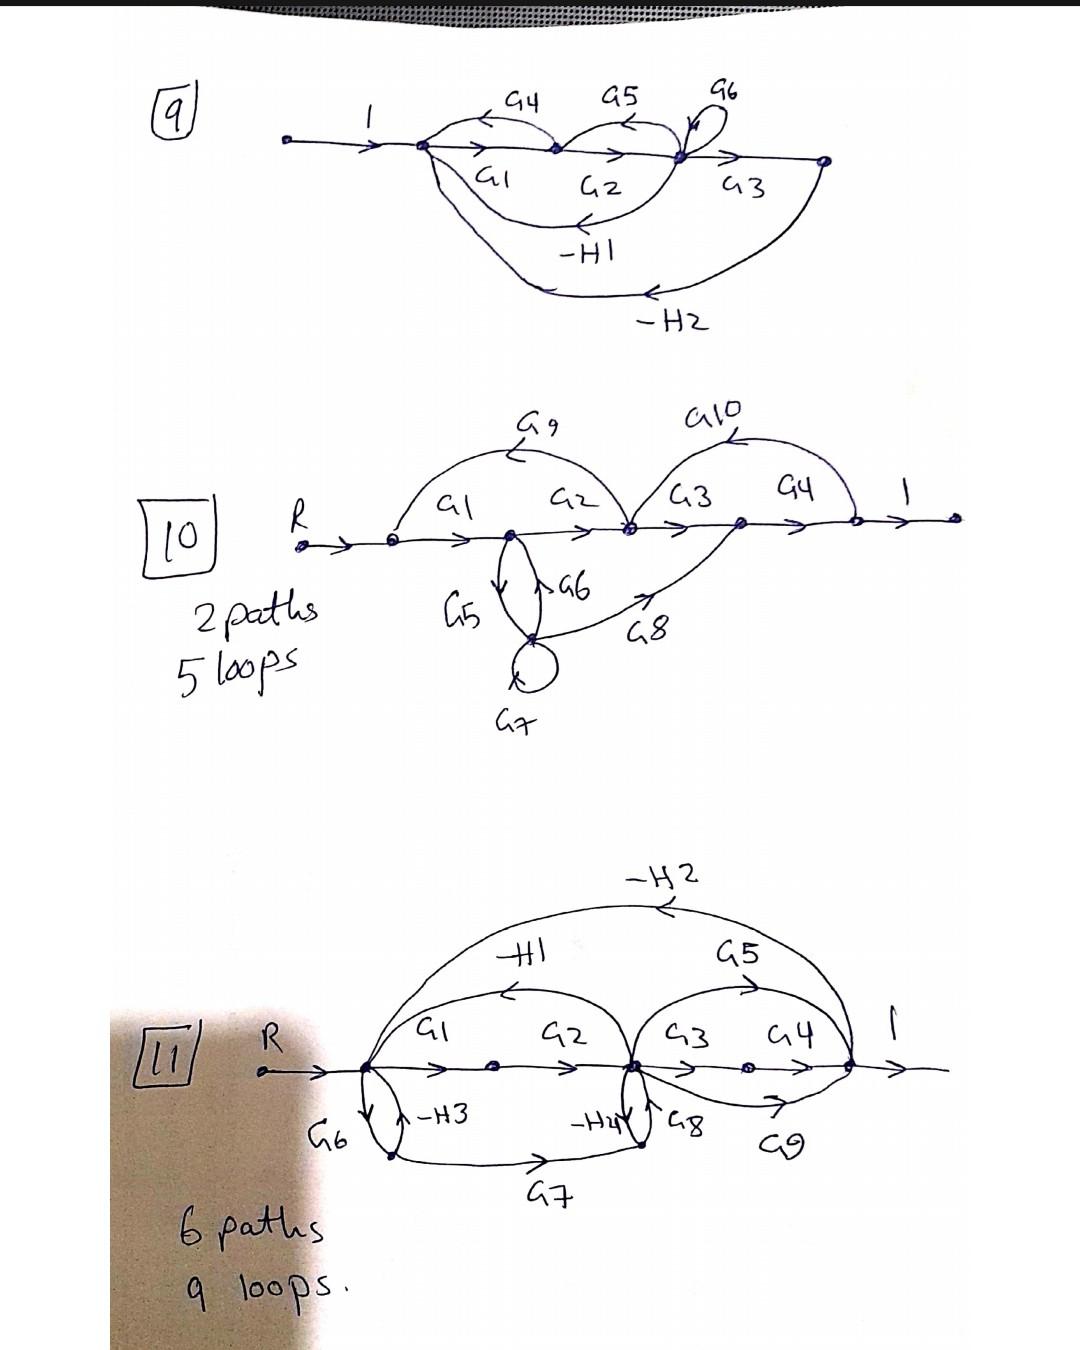 9
1
G4
G5
G6
G1
G2
G3
-H1
-H2
10
R
G9
G10
G1
G2
G3
G4
1
G5
G6
G8
G7
2 paths
5 loops
11
R
-H2
-H1
G5
G1
G2
G3
G4
1
G6
-H3
-H4
G8
G9
G7
6 paths
9 loops.